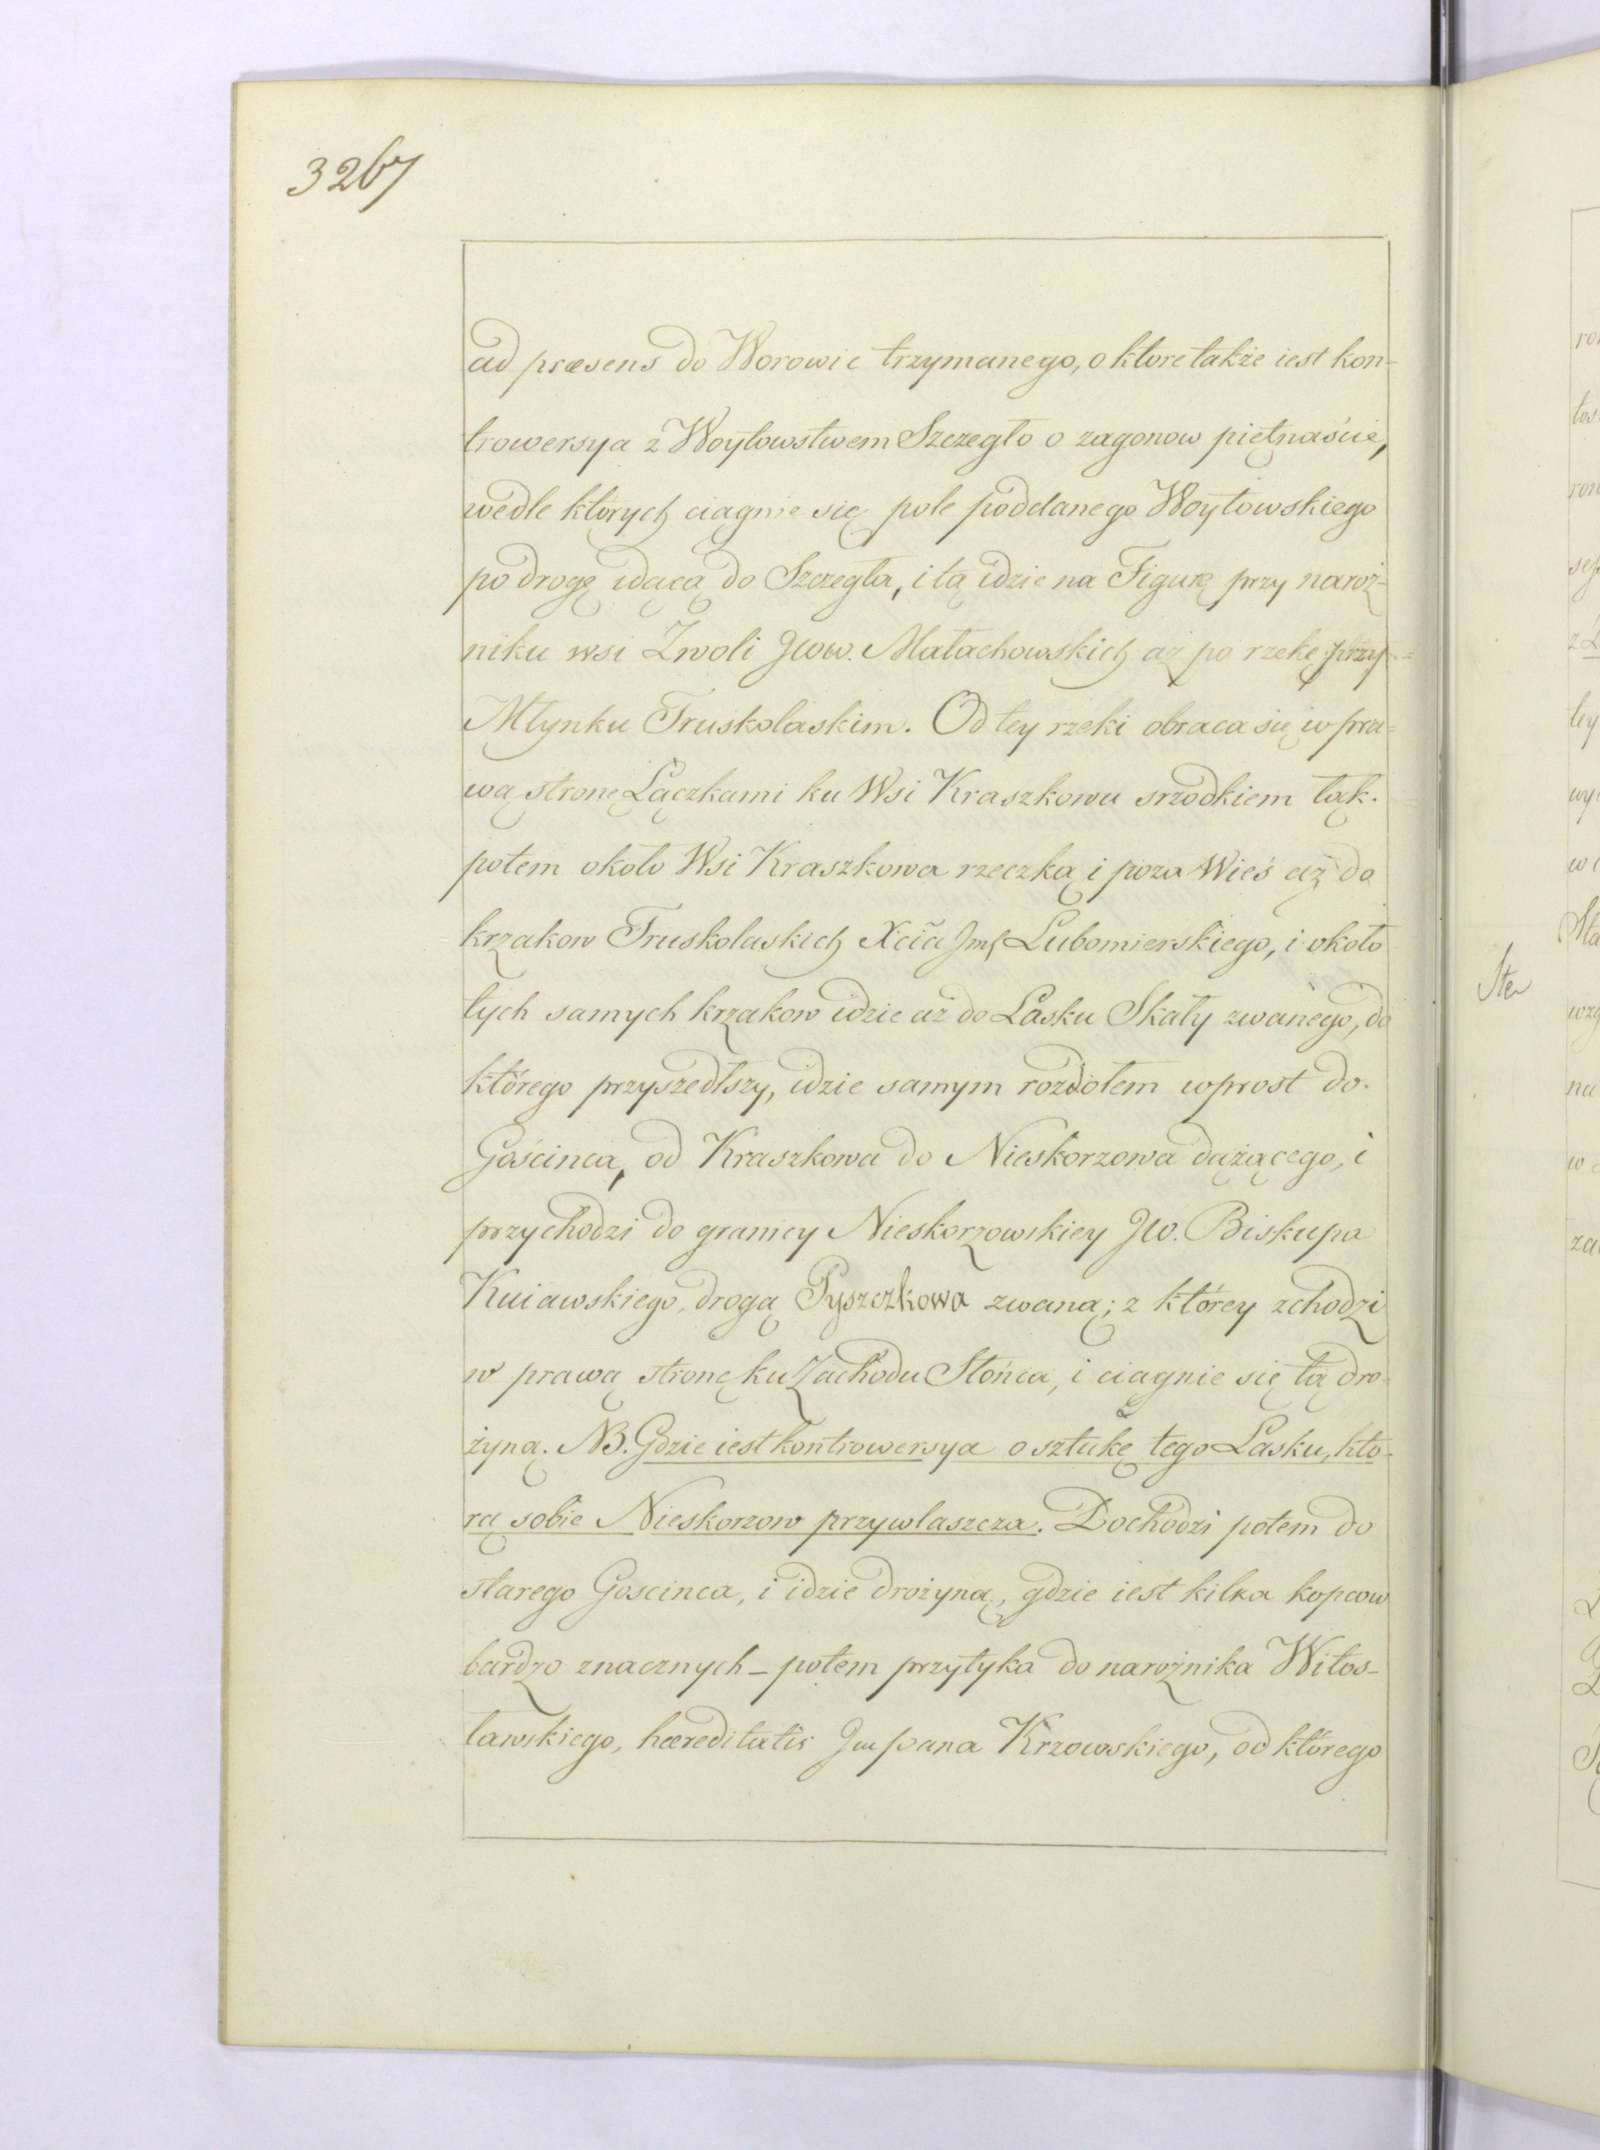 3267
ad præsens do Worowic trzymanego, o ktore także iest kon-
trowersya z Woytowstwem Szczegło o zagonow piętnaście,
wedle których ciagnie się pole poddanego Woytowskiego
po drogę idącą do Szczegła, i tą idzie na Figurę przy naroż-
niku wsi Zwoli JWW. Małachowskich aż po rzekę przy-
Młynku Truskolaskim. Od tey rzeki obraca się w pra-
wą stronę Łączkami ku Wsi Kraszkowu srzodkiem łąk.
potem około Wsi Kraszkowa rzeczką i poza Wieś aż do
krzakow Truskolaskich Xcia Jmſ Lubomierskiego, i około
tych samych krzakow idzie aż do Lasku Skały zwanego, do
którego przyszedłszy, idzie samym rozdołem wprost do.
Gościnca, od Kraszkowa do Nieskorzowa dążącego, i
przychodzi do granicy Nieskorzowskiey JW. Biskupa
Kuiawskiego, drogą Pyszczkowa zwaną; z którey zchodzi
w prawą stronę ku Zachodu Słońca, i ciagnie się tą dro-
żyną. NB. Gdzie iest kontrowersya o sztukę tego Lasku, kto-
rą sobie Nieskorzow przywlaszcza. Dochodzi potem do
starego Goscinca, i idzie drożyną, gdzie iest kilka kopcow
bardzo znacznych – potem przytyka do narożnika Witos-
ławskiego, hæreditatis Jmpana Krzowskiego, od którego